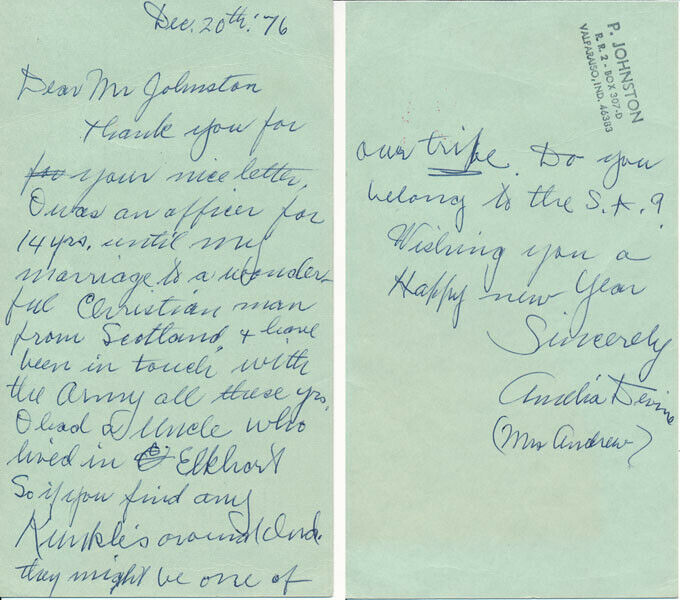 Dec. 20th. '76
Dear Mr Johnston
Thank you for
for your nice letter.
I was an officer for
14 yrs. until my
marriage to a wonder-
ful Christian man
from Scotland, & have
been in touch with
the Army all these yrs.
I had a Uncle who
lived in Elkhart
So if you find any
Kunkle's around Ind.
they might be one of
P. JOHNSTON
R. R. 2 - BOX 307-D
VALPARAISO, IND. 46383
our tribe. Do you
belong to the S.A.?
Wishing you a
Happy new Year
Sincerely
Amelia Devine
(Mrs Andrew)